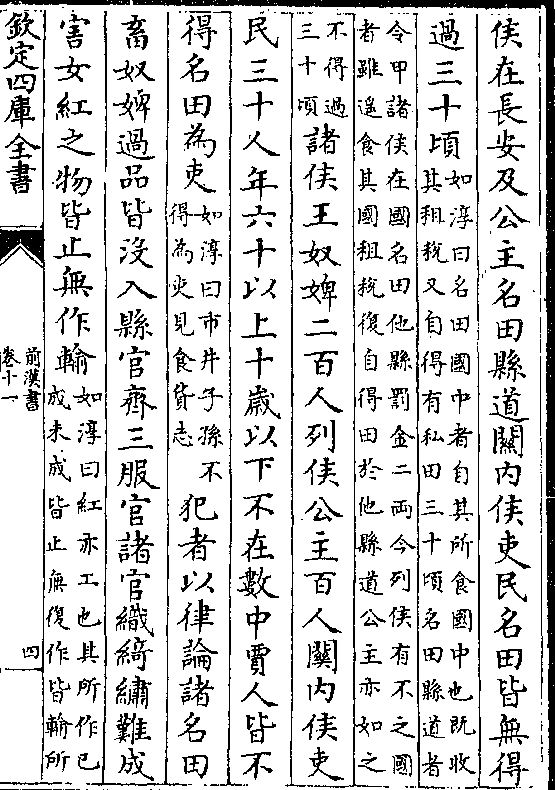 侯在長安及公主名田縣道關內侯吏民名田皆無得
過三十頃如淳曰名田國中者自其所食國中也既收
其租稅又自得有私田三十頃名田縣道者
令甲諸侯在國名田他縣罰金二兩今列侯有不之國
者雖遥食其國租稅復自得田於他縣道公主亦如之
不得過
三十頃諸侯王奴婢二百人列侯公主百人關內侯吏
民三十人年六十以上十歲以下不在數中賈人皆不
得名田為吏如淳曰市井子孫不
得為吏見食貨志犯者以律論諸名田
畜奴婢過品皆没入縣官齊三服官諸官織綺繡難成
害女紅之物皆止無作輸如淳曰紅亦工也其所作已
成未成皆止無復作皆輸所
欽定四庫全書
前漢書
卷十一
四